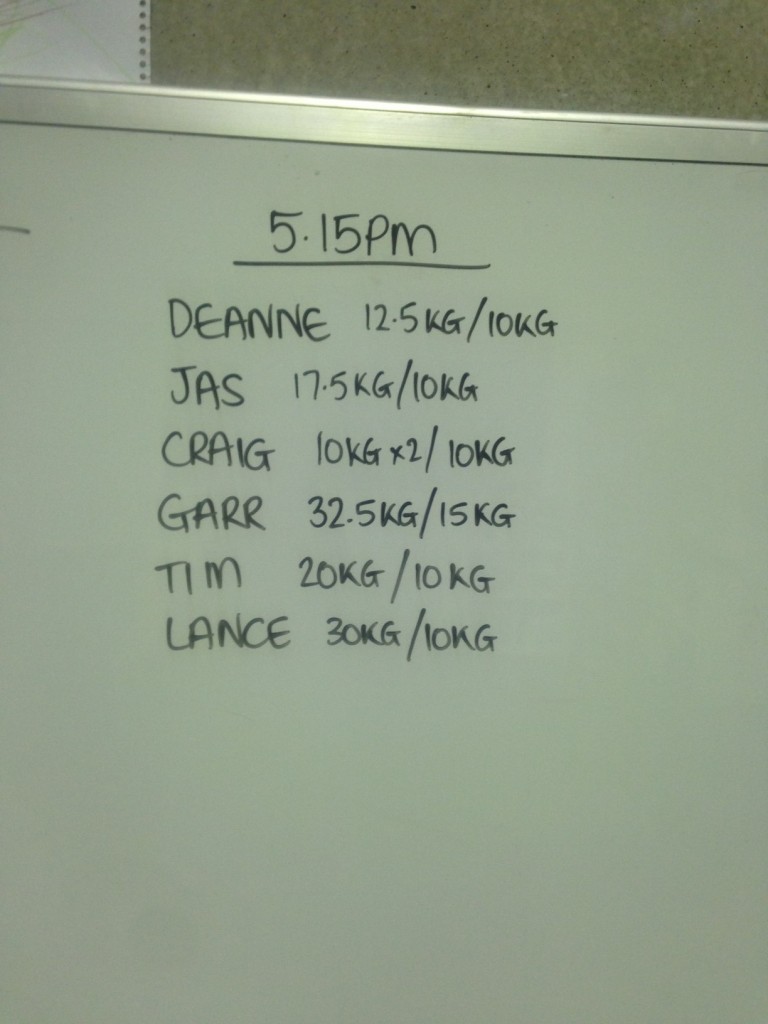 5.15PM
DEANNE 12.5KG/10KG
JAS 17.5KG/10KG
CRAIG 10KG x2/10KG
GARR 32.5KG/15KG
TIM 20KG/10KG
LANCE 30KG/10KG